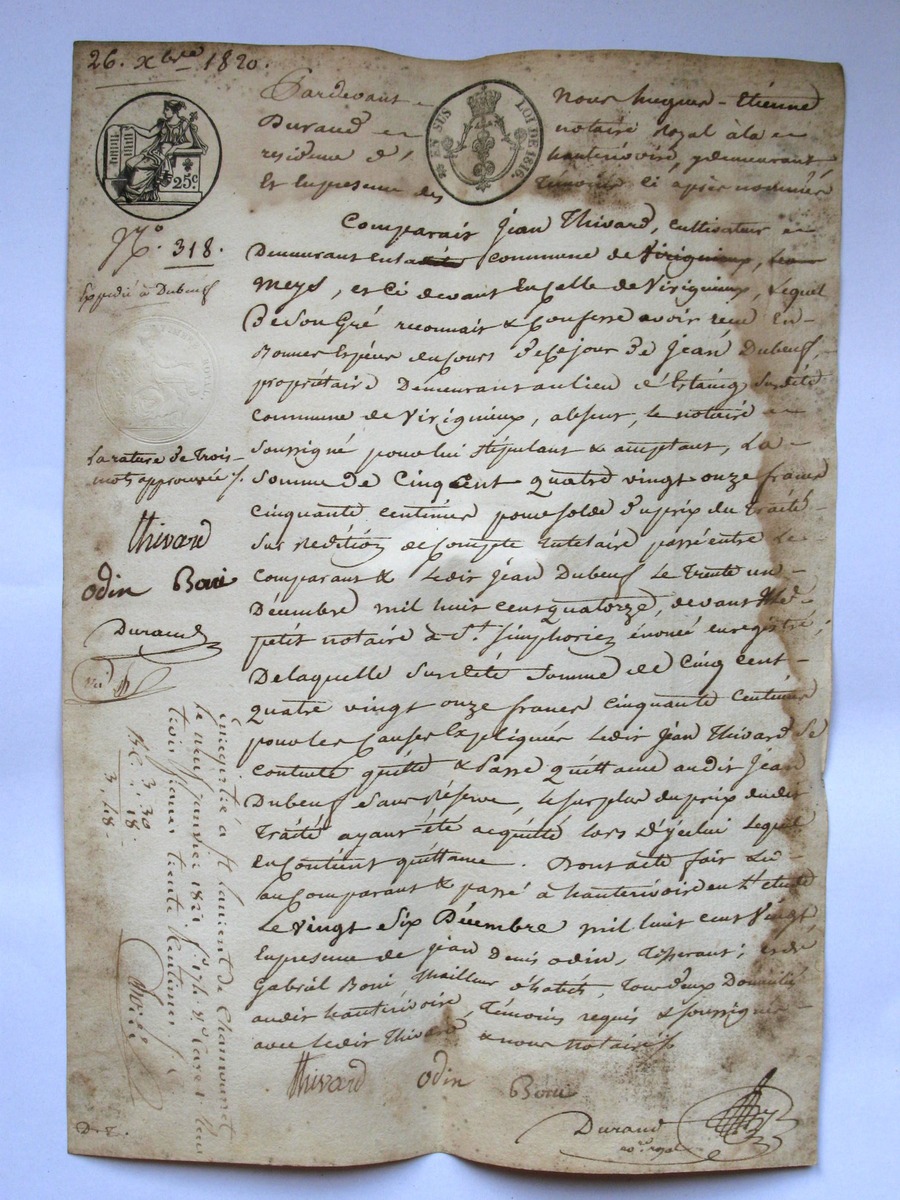 26. Xbre 1820.
Pardevant Nous hugues-Etienne
Durand notaire Royal à la
résidence d' hauterivoire, y demeurant
Et En presence des Témoins Ci après nommés
25c
EN SUS LOI DE 1816.
Comparait Jean Thivard, cultivateur
Demeurant en la commune de Viriguieux, Les
Meys, et Ci devant En Celle de Viriguieux, Lequel
De Son Gré reconnait & Confesse avoir reçu En
Bonnes Espéces du Cours De Ce jour De Jean Dubeuf,
propriétaire Demeurant au lieu d'Estaing Susdite
Commune de Viriguieux, absent, le notaire
Soussigné pour lui Stipulant & acceptant, La
Somme De Cinq Cent quatre vingt onze francs
Cinquante centimes pour solde Du prix du Traité
Sur Reddition de Compte tutelaire passé entre Le
Comparant & Ledit Jean Dubeuf Le Trente un
Décembre mil huit Cent quatorze, devant Me
petit notaire à St. Simphorien énoncé enregistré;
De laquelle Susdite Somme de Cinq Cent
quatre vingt onze francs Cinquante Centimes
pour les Causes Expliquées Ledit Jean Thivard Se
Contente quitte & Passe Quittance audit Jean
Dubeuf Sans Réserve, le surplus du prix dudit
Traité ayant été acquitté lors D'Icelui Lequel
En Contient quittance. Dont acte fait Lu
au Comparant & passé à hauterivoire en l'étude
Le Vingt Six Décembre mil huit cent Vingt,
En presence de Jean Denis Odin, Tisserant; et de
Gabriel Boni Tailleur d'habits, Tous deux Domiciliés
audit hauterivoire, Témoins requis & soussignés
avec Ledit Thivard & nous notaire
Thivard Odin Boni
Durand
no.re royal
No. 318.
Expédié à Dubeuf
La rature de Trois
mots approuvée
Thivard
Odin Boni
Durand
Enregistré à St Laurent de Chamousset
le neuf janvier 1821.
trois francs trente Centimes
3 30
18
3. 48
D. T.